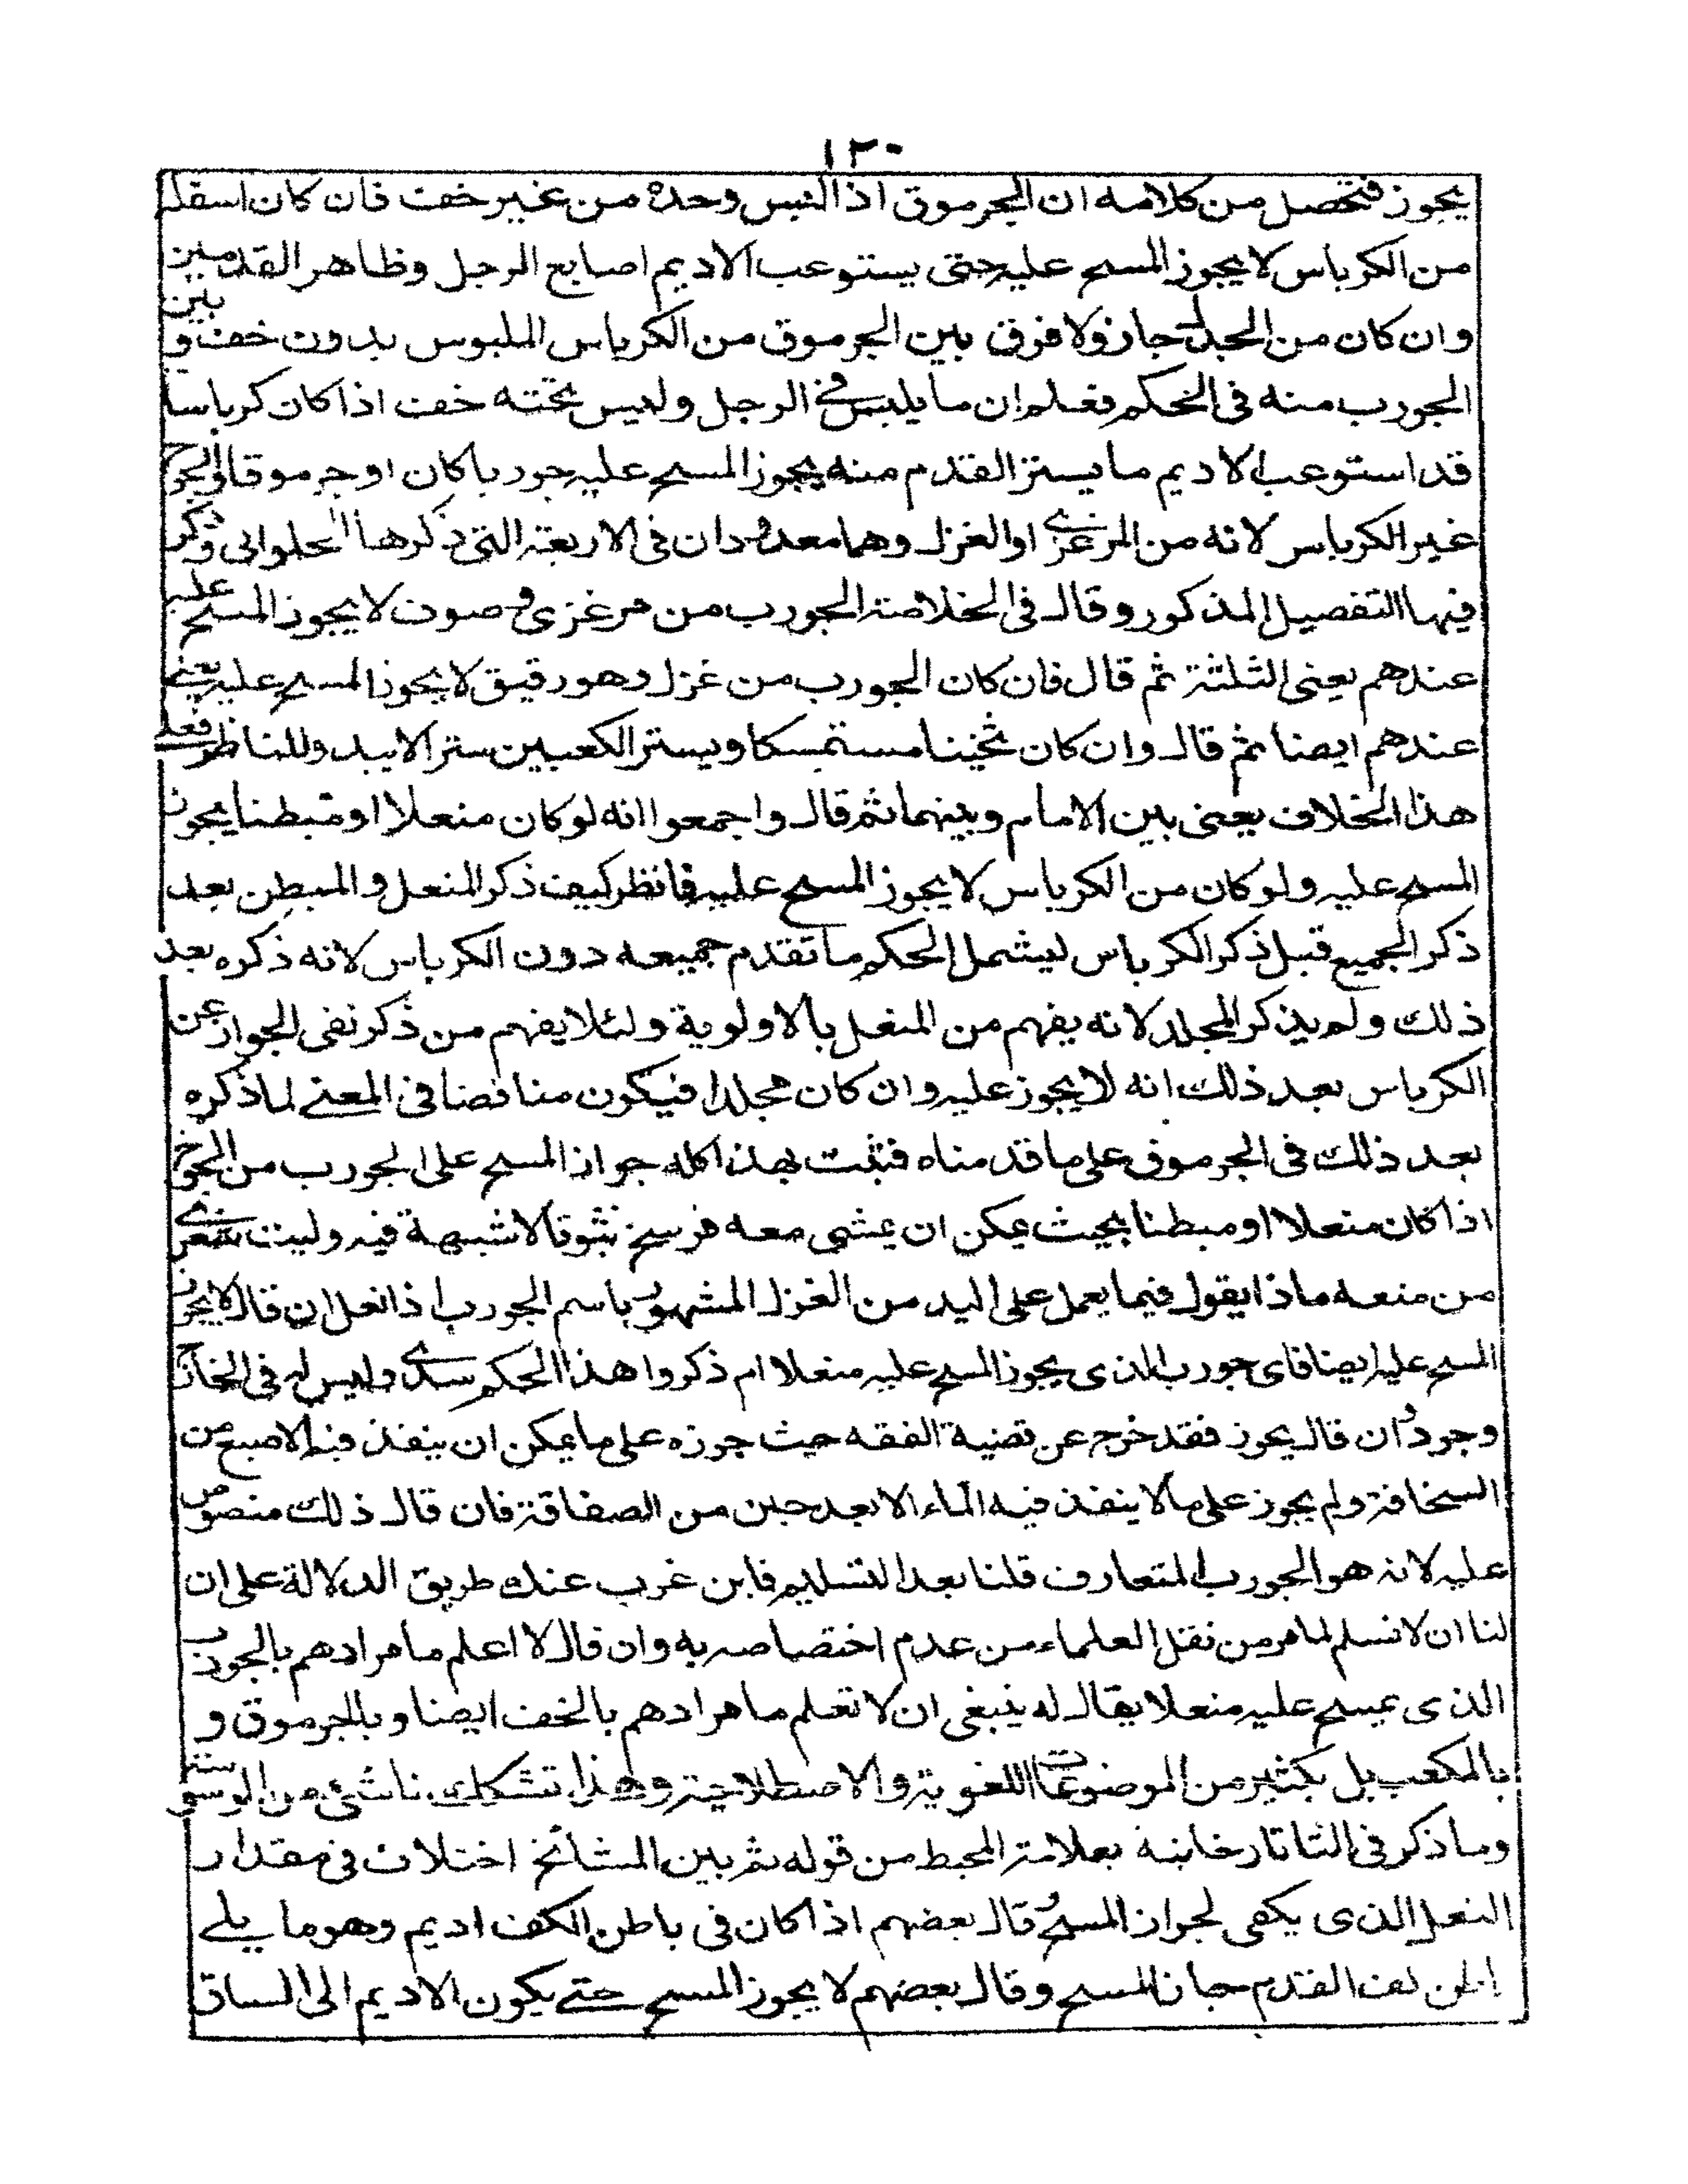 ١٢٠
يجوز فتحصل من كلامه ان الجرموق اذا لبس وحده من غير خف فان كان اسفله
من الكرباس لا يجوز المسح عليه حتى يستوعب الاديم اصابع الرجل وظاهر القدمين
وان كان من الجلد جاز ولا فرق بين الجرموق من الكرباس الملبوس بدون خف و بين
الجورب منه فى الحكم فعلم ان ما يلبس فى الرجل وليس تحته خف اذا كان كرباسا
قد استوعب الاديم ما يستر القدم منه يجوز المسح عليه جوربا كان او جرموقا والجوخ
غير الكرباس لانه من المرعزى او الغزل وهما معدودان فى الاربعة التى ذكرها الحلوانى وذكر
فيها التفصيل المذكور وقال فى الخلاصة الجورب من مرغزى و صوف لا يجوز المسح عليه
عندهم يعنى الثلثة ثم قال فان كان الجورب من غزل وهو رقيق لا يجوز المسح عليه يعنى
عندهم ايضا ثم قال وان كان ثخينا مستمسكا ويستر الكعبين سترا لا يبدو للناظر فعلى
هذا الخلاف يعنى بين الامام وبينهما ثم قال واجمعوا انه لو كان منعلا او مبطنا يجوز
المسح عليه ولو كان من الكرباس لا يجوز المسح عليه فانظر كيف ذكر المنعل و المبطن بعد
ذكر الجميع قبل ذكر الكرباس ليشمل الحكم ما تقدم جميعه دون الكرباس لانه ذكره بعد
ذلك ولم يذكر المجلد لانه يفهم من المنعل بالاولوية ولئلا يفهم من ذكر نفى الجواز عن
الكرباس بعد ذلك انه لا يجوز عليه وان كان مجلدا فيكون مناقضا فى المعنى لما ذكره
بعد ذلك فى الجرموق على ما قدمناه فثبت بهذا كله جواز المسح على الجورب من الجوخ
اذا كان منعلا او مبطنا بحيث يمكن ان يمشى معه فرسخ ثبوتا لا شبهة فيه وليت شعرى
من منعه ماذا يقول فيما يعمل على اليد من الغزل المشهور باسم الجورب اذا نعل ان قال لا يجوز
المسح عليه ايضا فاى جورب الذى يجوز المسح عليه منعلا ام ذكروا هذا الحكم سدى وليس له فى الخارج
وجود وان قال يجوز فقد خرج عن قضية الفقه حيث جوزه على ما يمكن ان ينفذ فيه الاصبع من
السخافة ولم يجوز على ما لا ينفذ فيه الماء الا بعد حين من الصفاقة فان قال ذلك منصوص
عليه لانه هو الجورب المتعارف قلنا بعد التسليم فاين غرب عنك طريق الدلالة على ان
لنا ان لا نسلم لما مر من نقل العلماء من عدم اختصاصه به وان قال لا اعلم ما مرادهم بالجورب
الذى يمسح عليه منعلا يقال له ينبغى ان لا تعلم ما مرادهم بالخف ايضا و بالجرموق و
بالمكعب بل بكثير من الموضوعات اللغوية والاصطلاحية وهذا تشكيك ناشئ من الوسوسة
وما ذكر فى التاتارخانية بعلامة المحيط من قوله ثم بين المشائخ اختلاف فى مقدار
النعل الذى يكفى لجواز المسح قال بعضهم اذا كان فى باطن الكف اديم وهو ما يلى
باطن كف القدم جاز المسح وقال بعضهم لا يجوز المسح حتى يكون الاديم الى الساق